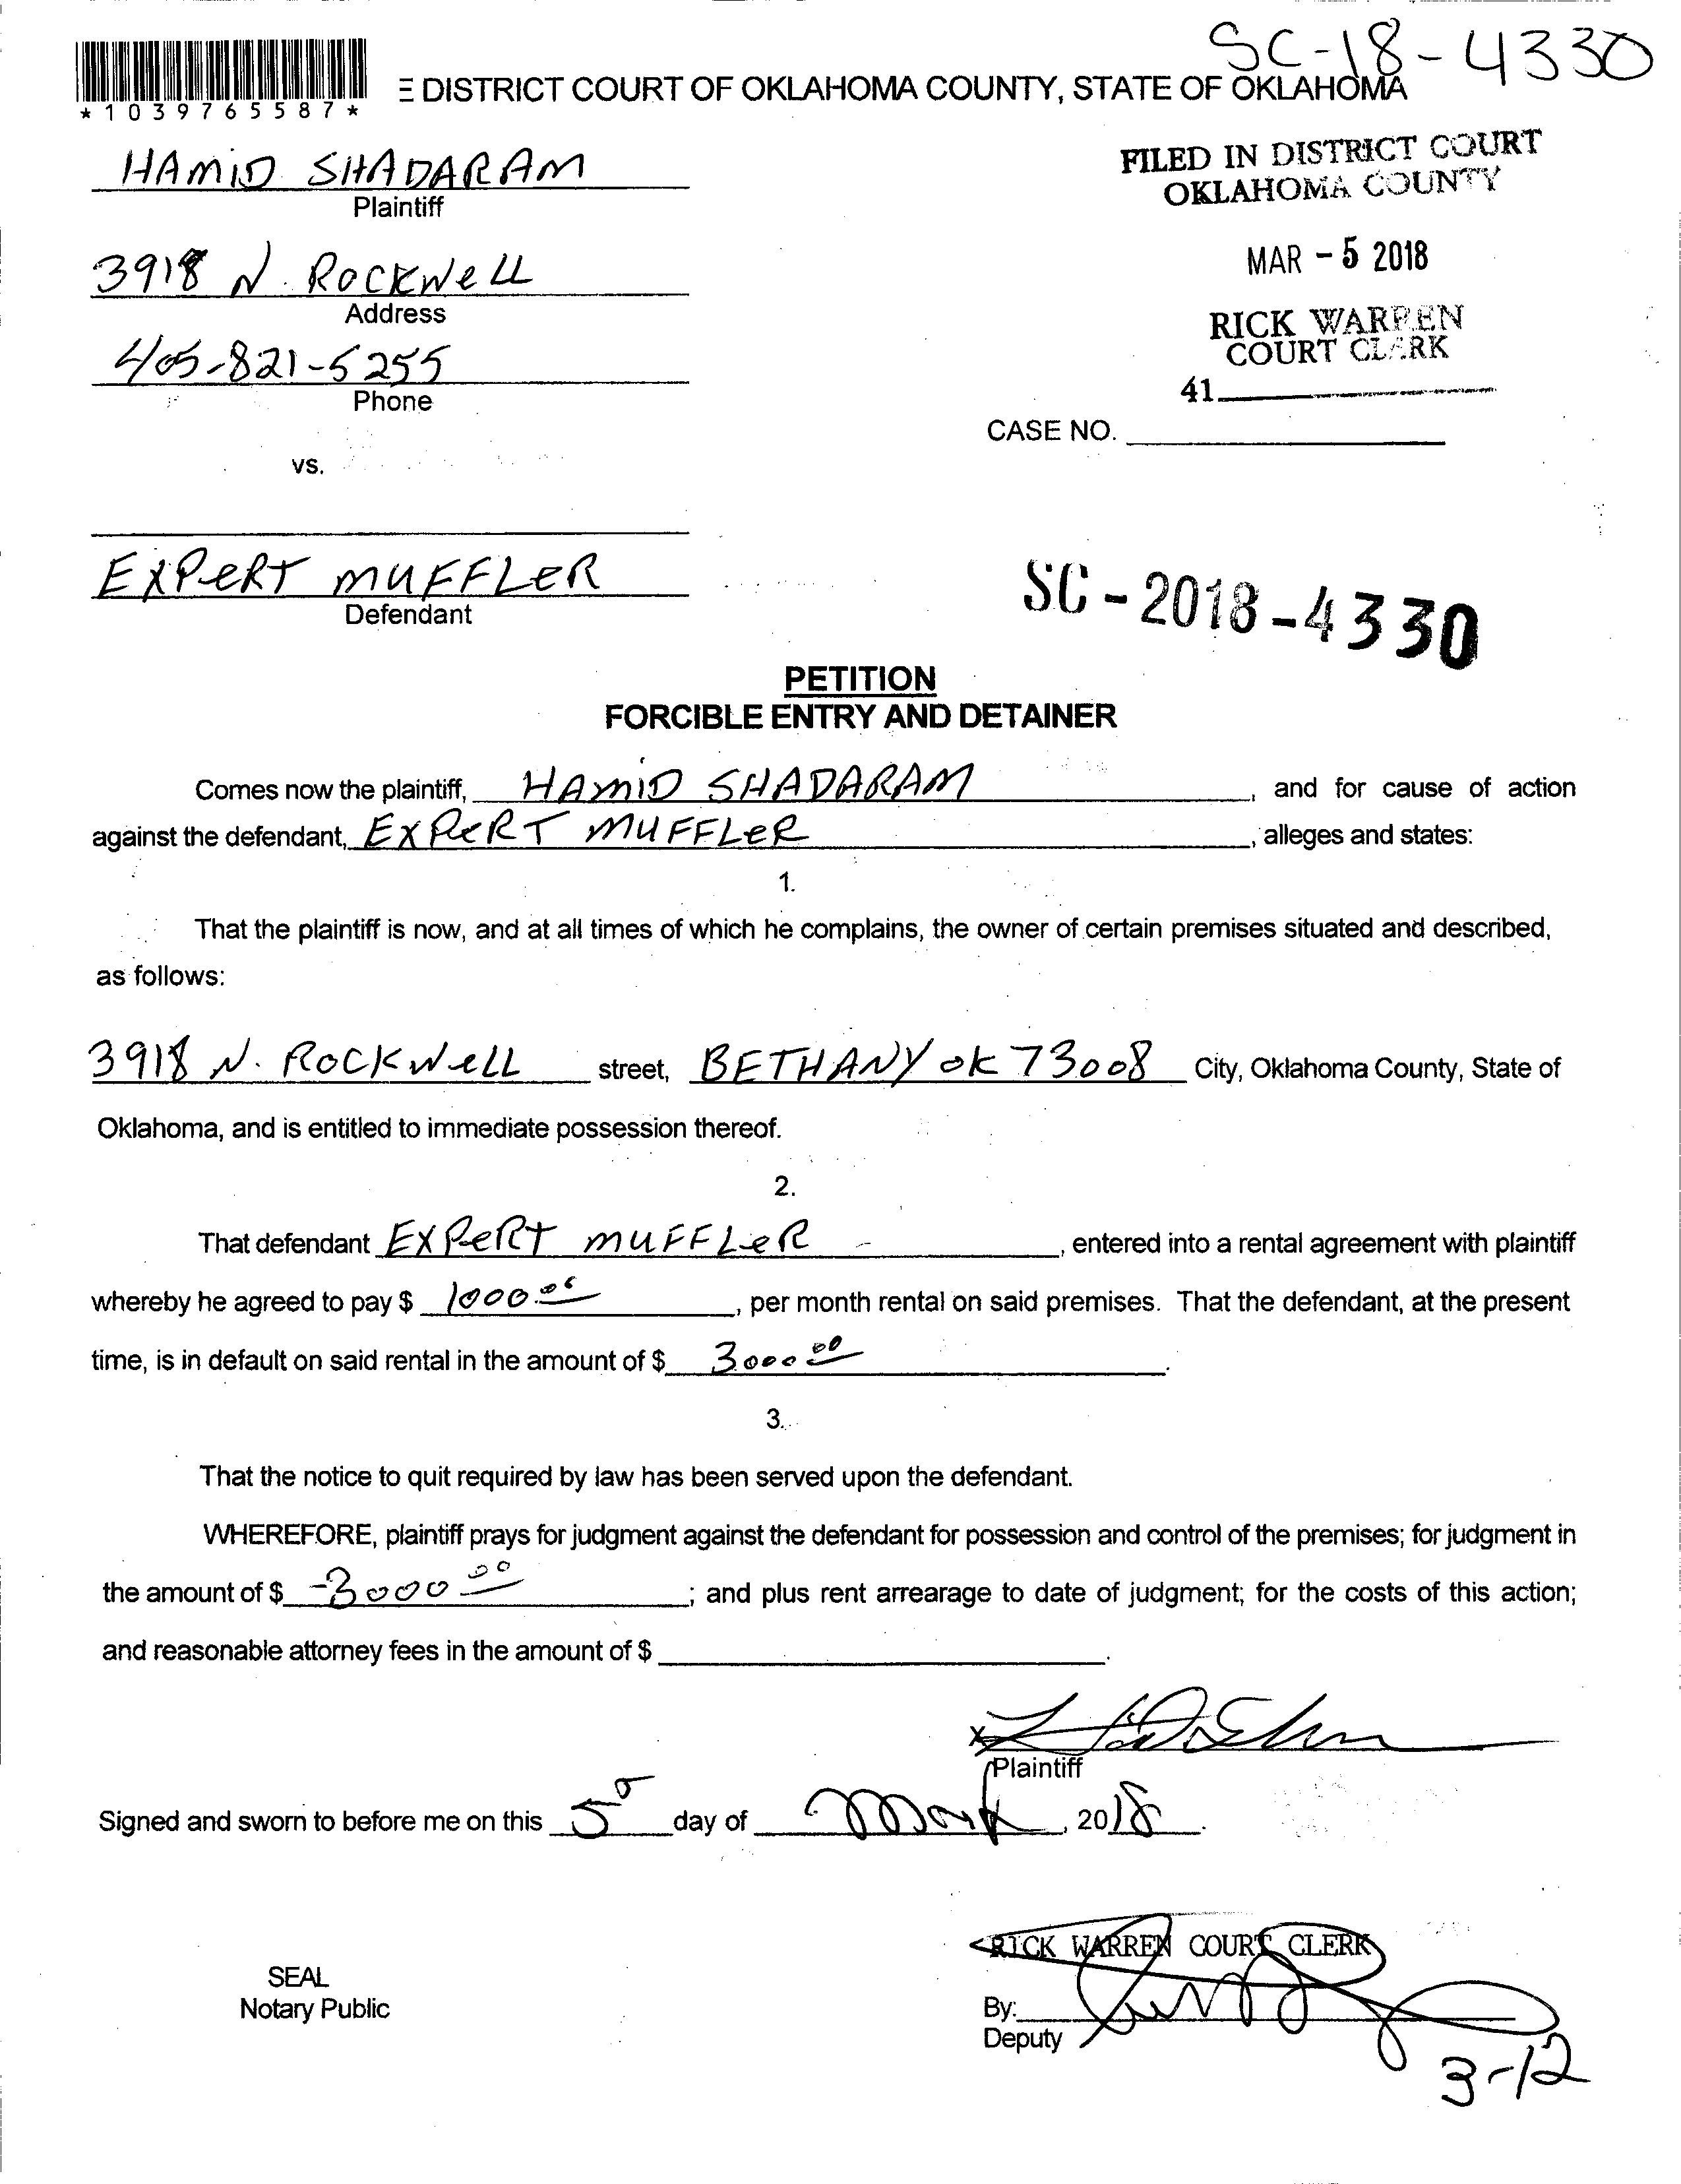 SC-18-4330
*1039765587*
E DISTRICT COURT OF OKLAHOMA COUNTY, STATE OF OKLAHOMA
HAMID SHADARAM
Plaintiff
FILED IN DISTRICT COURT
OKLAHOMA COUNTY
3918 N. ROCKWELL
Address
MAR - 5 2018
405-821-5255
Phone
RICK WARREN
COURT CLERK
41
CASE NO.
vs.
EXPERT MUFFLER
Defendant
SC - 2018 - 4330
PETITION
FORCIBLE ENTRY AND DETAINER
Comes now the plaintiff, HAMID SHADARAM, and for cause of action
against the defendant, EXPERT MUFFLER, alleges and states:
1.
That the plaintiff is now, and at all times of which he complains, the owner of certain premises situated and described,
as follows:
3918 N. ROCKWELL street, BETHANY OK 73008 City, Oklahoma County, State of
Oklahoma, and is entitled to immediate possession thereof.
2.
That defendant EXPERT MUFFLER, entered into a rental agreement with plaintiff
whereby he agreed to pay $ 1000.00, per month rental on said premises. That the defendant, at the present
time, is in default on said rental in the amount of $ 3000 00.
3.
That the notice to quit required by law has been served upon the defendant.
WHEREFORE, plaintiff prays for judgment against the defendant for possession and control of the premises; for judgment in
the amount of $ 3000 00; and plus rent arrearage to date of judgment; for the costs of this action;
and reasonable attorney fees in the amount of $ .
x
Plaintiff
Signed and sworn to before me on this 5 day of March, 2018.
RICK WARREN COURT CLERK
SEAL
Notary Public
By:
Deputy
3-12